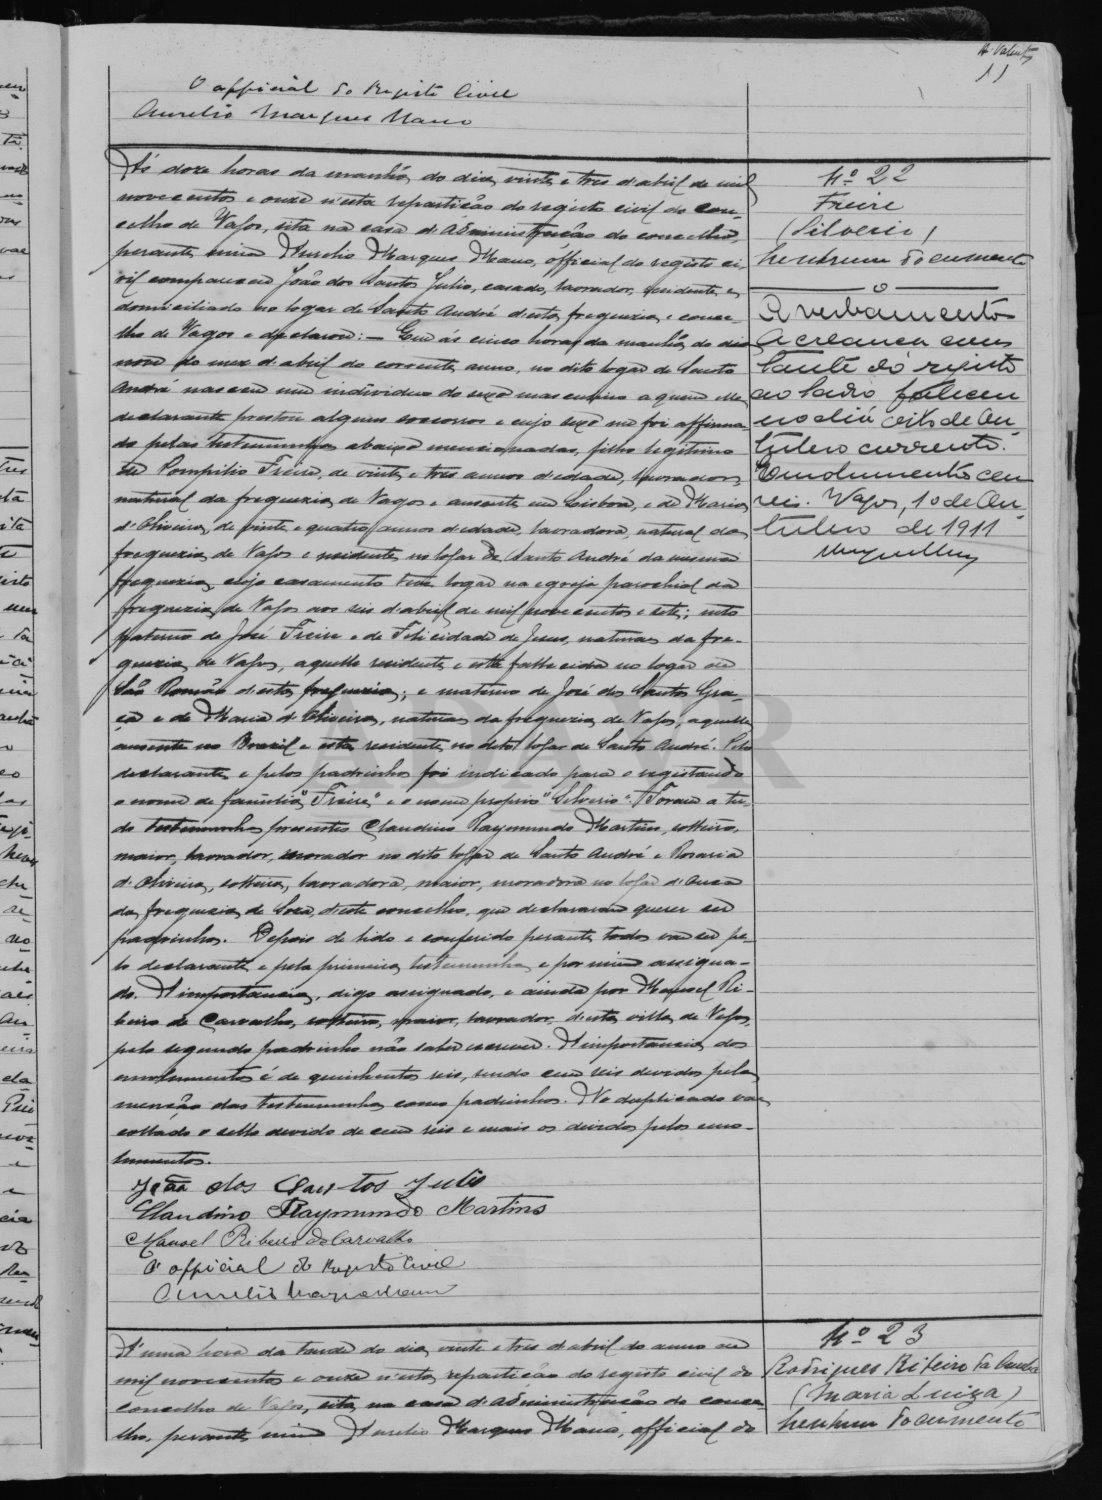 11
O official do Registo Civil
Aurelio Marques Mano
Ás doze horas da manhã do dia vinte e tres d'abril de mil
novecentos e onze n'esta repartição do registo civil do con-
celho de Vagos, sita na casa d'Administração do concelho,
perante mim Aurelio Marques Mano, official do registo ci-
vil compareceu João dos Santos Julio, casado, lavrador, residente e
domiciliado no logar de Santo André d'esta freguezia e conce-
lho de Vagos e declarou: — Que ás cinco horas da manhã do dia
nove do mez d'abril do corrente anno, no dito logar de Santo
André nasceu um individuo do sexo masculino a quem elle
declarante prestou alguns soccorros e cujo sexo me foi affirma-
do pelas testemunhas abaixo mencionadas, filho legitimo
de Pompilio Freire, de vinte e tres annos d'edade, lavrador,
natural da freguezia de Vagos e ausente em Lisboa, e de Maria
d'Oliveira, de vinte e quatro annos d'edade, lavradora, natural da
freguezia de Vagos e residente no logar de Santo André da mesma
freguezia, cujo casamento teve logar na egreja parochial da
freguezia de Vagos aos seis d'abril de mil novecentos e sete; neto
paterno de José Freire e de Felicidade de Jesus, naturaes da fre-
guezia de Vagos, aquelle residente e esta fallecida no logar de
São Romão d'esta freguezia; e materno de José dos Santos Gra-
ça e de Maria d'Oliveira, naturaes da freguezia de Vagos, aquelle
ausente no Brazil e esta residente no dito logar de Santo André. Pelo
declarante e pelos padrinhos foi indicado para o registando
o nome de familia "Freire" e o nome proprio "Silverio". Foram a tu-
do testemunhas presentes Claudino Raymundo Martins, solteiro,
maior, lavrador, morador no dito logar de Santo André e Rosaria
d'Oliveira, solteira, lavradora, maior, moradora no logar d'Ouca
da freguezia de Soza, d'este concelho, que declararam querer ser
padrinhos. Depois de lido e conferido perante todos vae ser pe-
lo declarante e pela primeira testemunha e por mim assigna-
do. A importancia, digo assignado, e ainda por Manoel Ri-
beiro de Carvalho, solteiro, maior, lavrador, d'esta villa de Vagos,
pelo segundo padrinho não saber escrever. A importancia dos
emolumentos é de quinhentos reis, sendo cem reis devidos pela
menção das testemunhas como padrinhos. No duplicado vae
collado o sello devido de cem reis e mais os devidos pelos emo-
lumentos.
João dos Santos Julio
Claudino Raymundo Martins
Manoel Ribeiro de Carvalho
O official do Registo Civil
Aurelio Marques Mano
Nº 22
Freire
(Silverio)
Nenhum documento
Averbamento
A creança cons
tante do registo
ao lado faleceu
no dia oito de Ou-
tubro corrente.
Emolumentos cem
reis. Vagos, 10 de Ou-
tubro de 1911
ADAVR
Á uma hora da tarde do dia vinte e tres d'abril do anno de
mil novecentos e onze n'esta repartição do registo civil do
concelho de Vagos, sita na casa d'Administração do conce-
lho, perante mim Aurelio Marques Mano, official do
Nº 23
Rodrigues Ribeiro da Cunha
(Maria Luiza)
Nenhum documento